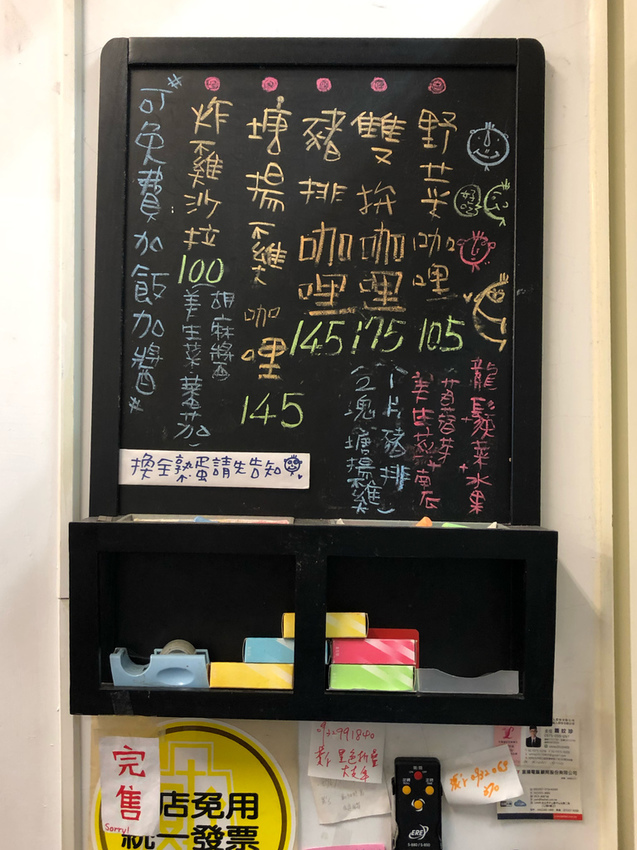 野菜咖哩 105
龍鬚菜+水果
+苜蓿芽
美生菜+南瓜
雙拚咖哩 175
(1片豬排
2塊塘揚雞)
豬排咖哩 145
塘揚雞咖哩 145
炸雞沙拉 100
胡麻醬
(美生菜
*可免費加飯加醬*
換全熟蛋請先告知
好吃
完售
Sorry!
店免用
統一發票
ERE